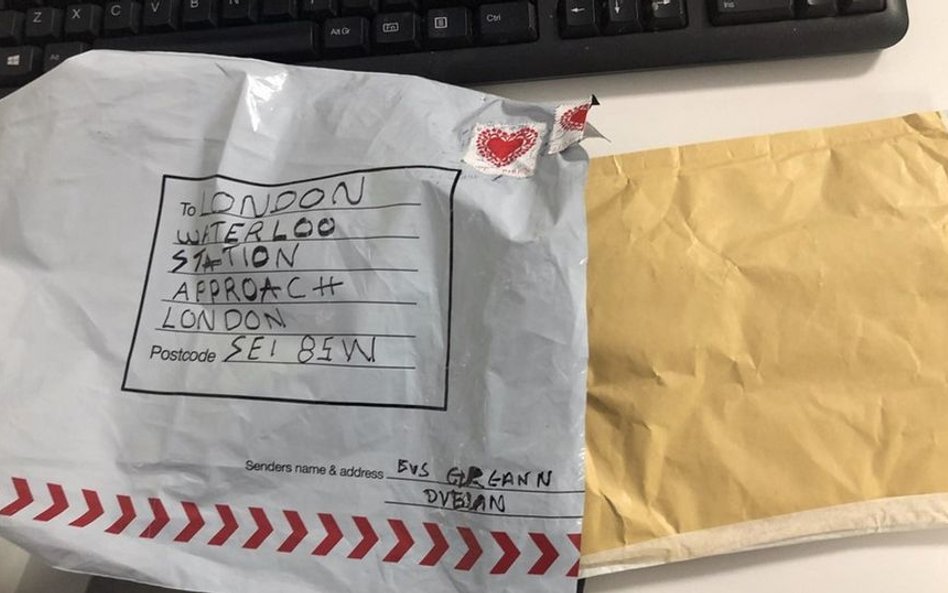 Z X C V B N M
Alt Gr Fn Ctrl Ins
To LONDON
WATERLOO
STATION
APPROACH
LONDON
Postcode SE1 8SW
Senders name & address BUS